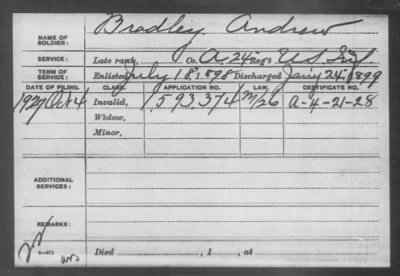 NAME OF SOLDIER: Bradley Andrew
SERVICE: Late rank, Co. A. 24 Reg't U.S. Inf.
TERM OF SERVICE: Enlisted July 18, 1898 Discharged Jany 24, 1899
DATE OF FILING. CLASS. APPLICATION NO. LAW. CERTIFICATE NO.
1927 Oct 4 Invalid, 1,593,374 A-4-21-28
Widow,
Minor,
ADDITIONAL SERVICES:
REMARKS:
Died , 1 , at